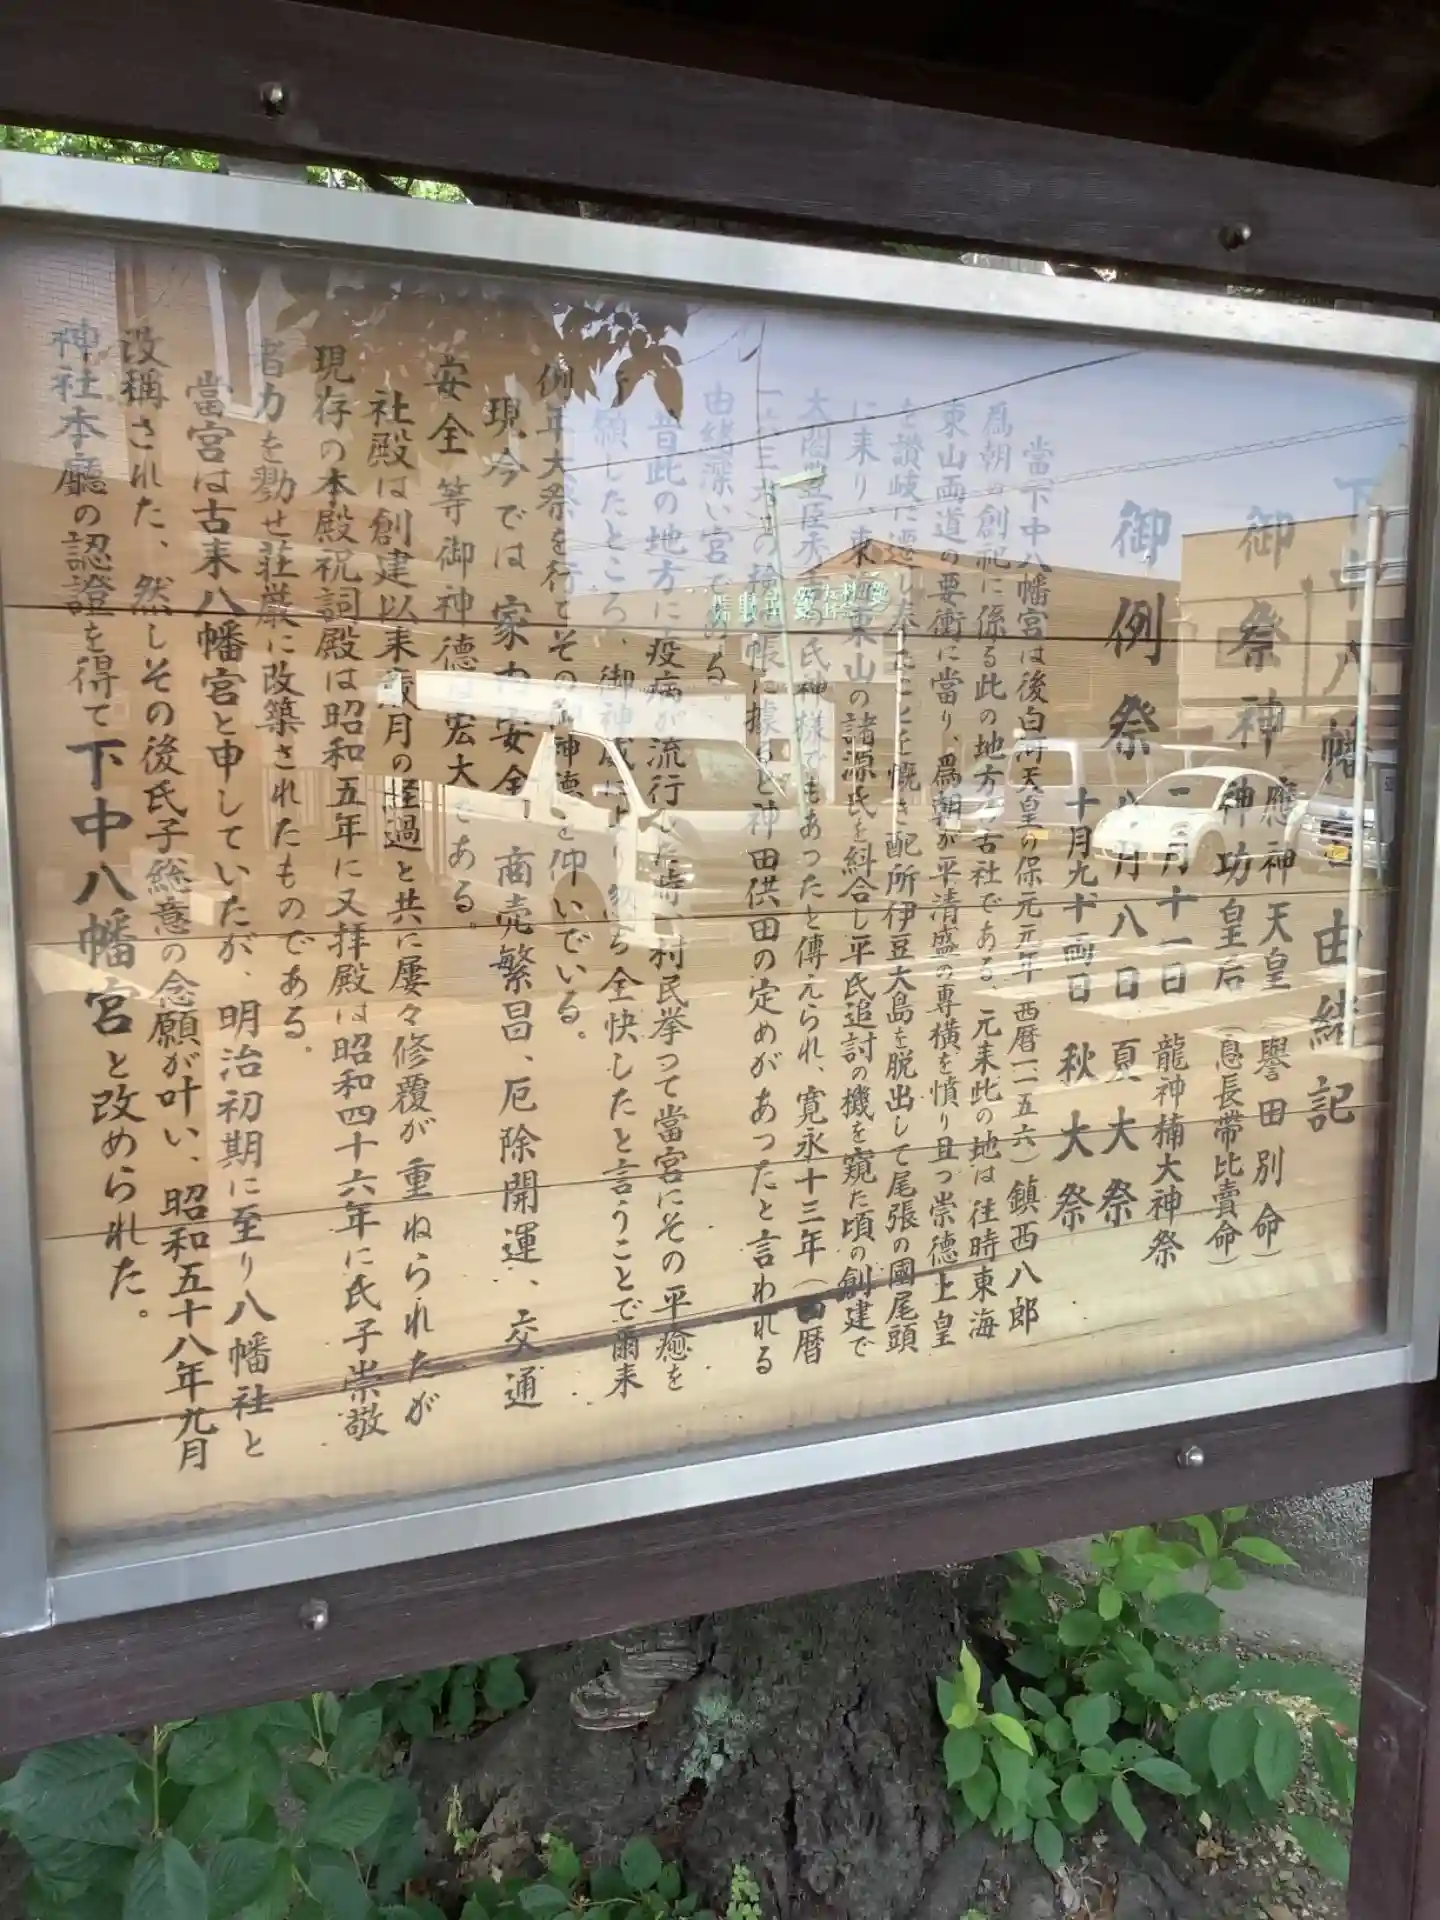 下中八幡宮由緒記
御祭神 應神天皇（譽田別命）
神功皇后（息長帶比賣命）
御例祭 二月十一日 龍神楠大神祭
八月八日 夏大祭
十月九、十両日 秋大祭
當下中八幡宮は後白河天皇の保元元年（西暦一一五六）鎮西八郎
爲朝の創祀に係る此の地方の古社である、元来此の地は往時東海
東山両道の要衝に當り、爲朝が平清盛の専横を憤り且つ崇德上皇
を讃岐に遷し奉たことを慨き配所伊豆大島を脱出して尾張の國尾頭
に来り、東海東山の諸源氏を糾合し平氏追討の機を窺た頃の創建で
太閤豊臣秀吉の氏神様でもあったと傳えられ、寛永十三年（西暦
一六三六）の検地帳に據ると神田供田の定めがあったと言われる
由緒深い宮である。
昔此の地方に疫病が流行した時、村民挙って當宮にその平癒を
祈願したところ、御神威により忽ち全快したと言うことで爾来
例年大祭を行とその御神徳を仰いでいる。
現今では家内安全、商売繁昌、厄除開運、交通
安全等御神德は宏大である。
社殿は創建以来歳月の経過と共に屡々修覆が重ねられたが
現存の本殿祝詞殿は昭和五年に又拝殿は昭和四十六年に氏子崇敬
者力を勠せ荘厳に改築されたものである。
當宮は古来八幡宮と申していたが、明治初期に至り八幡社と
改稱された、然しその後氏子総意の念願が叶い、昭和五十八年九月
神社本廳の認證を得て下中八幡宮と改められた。